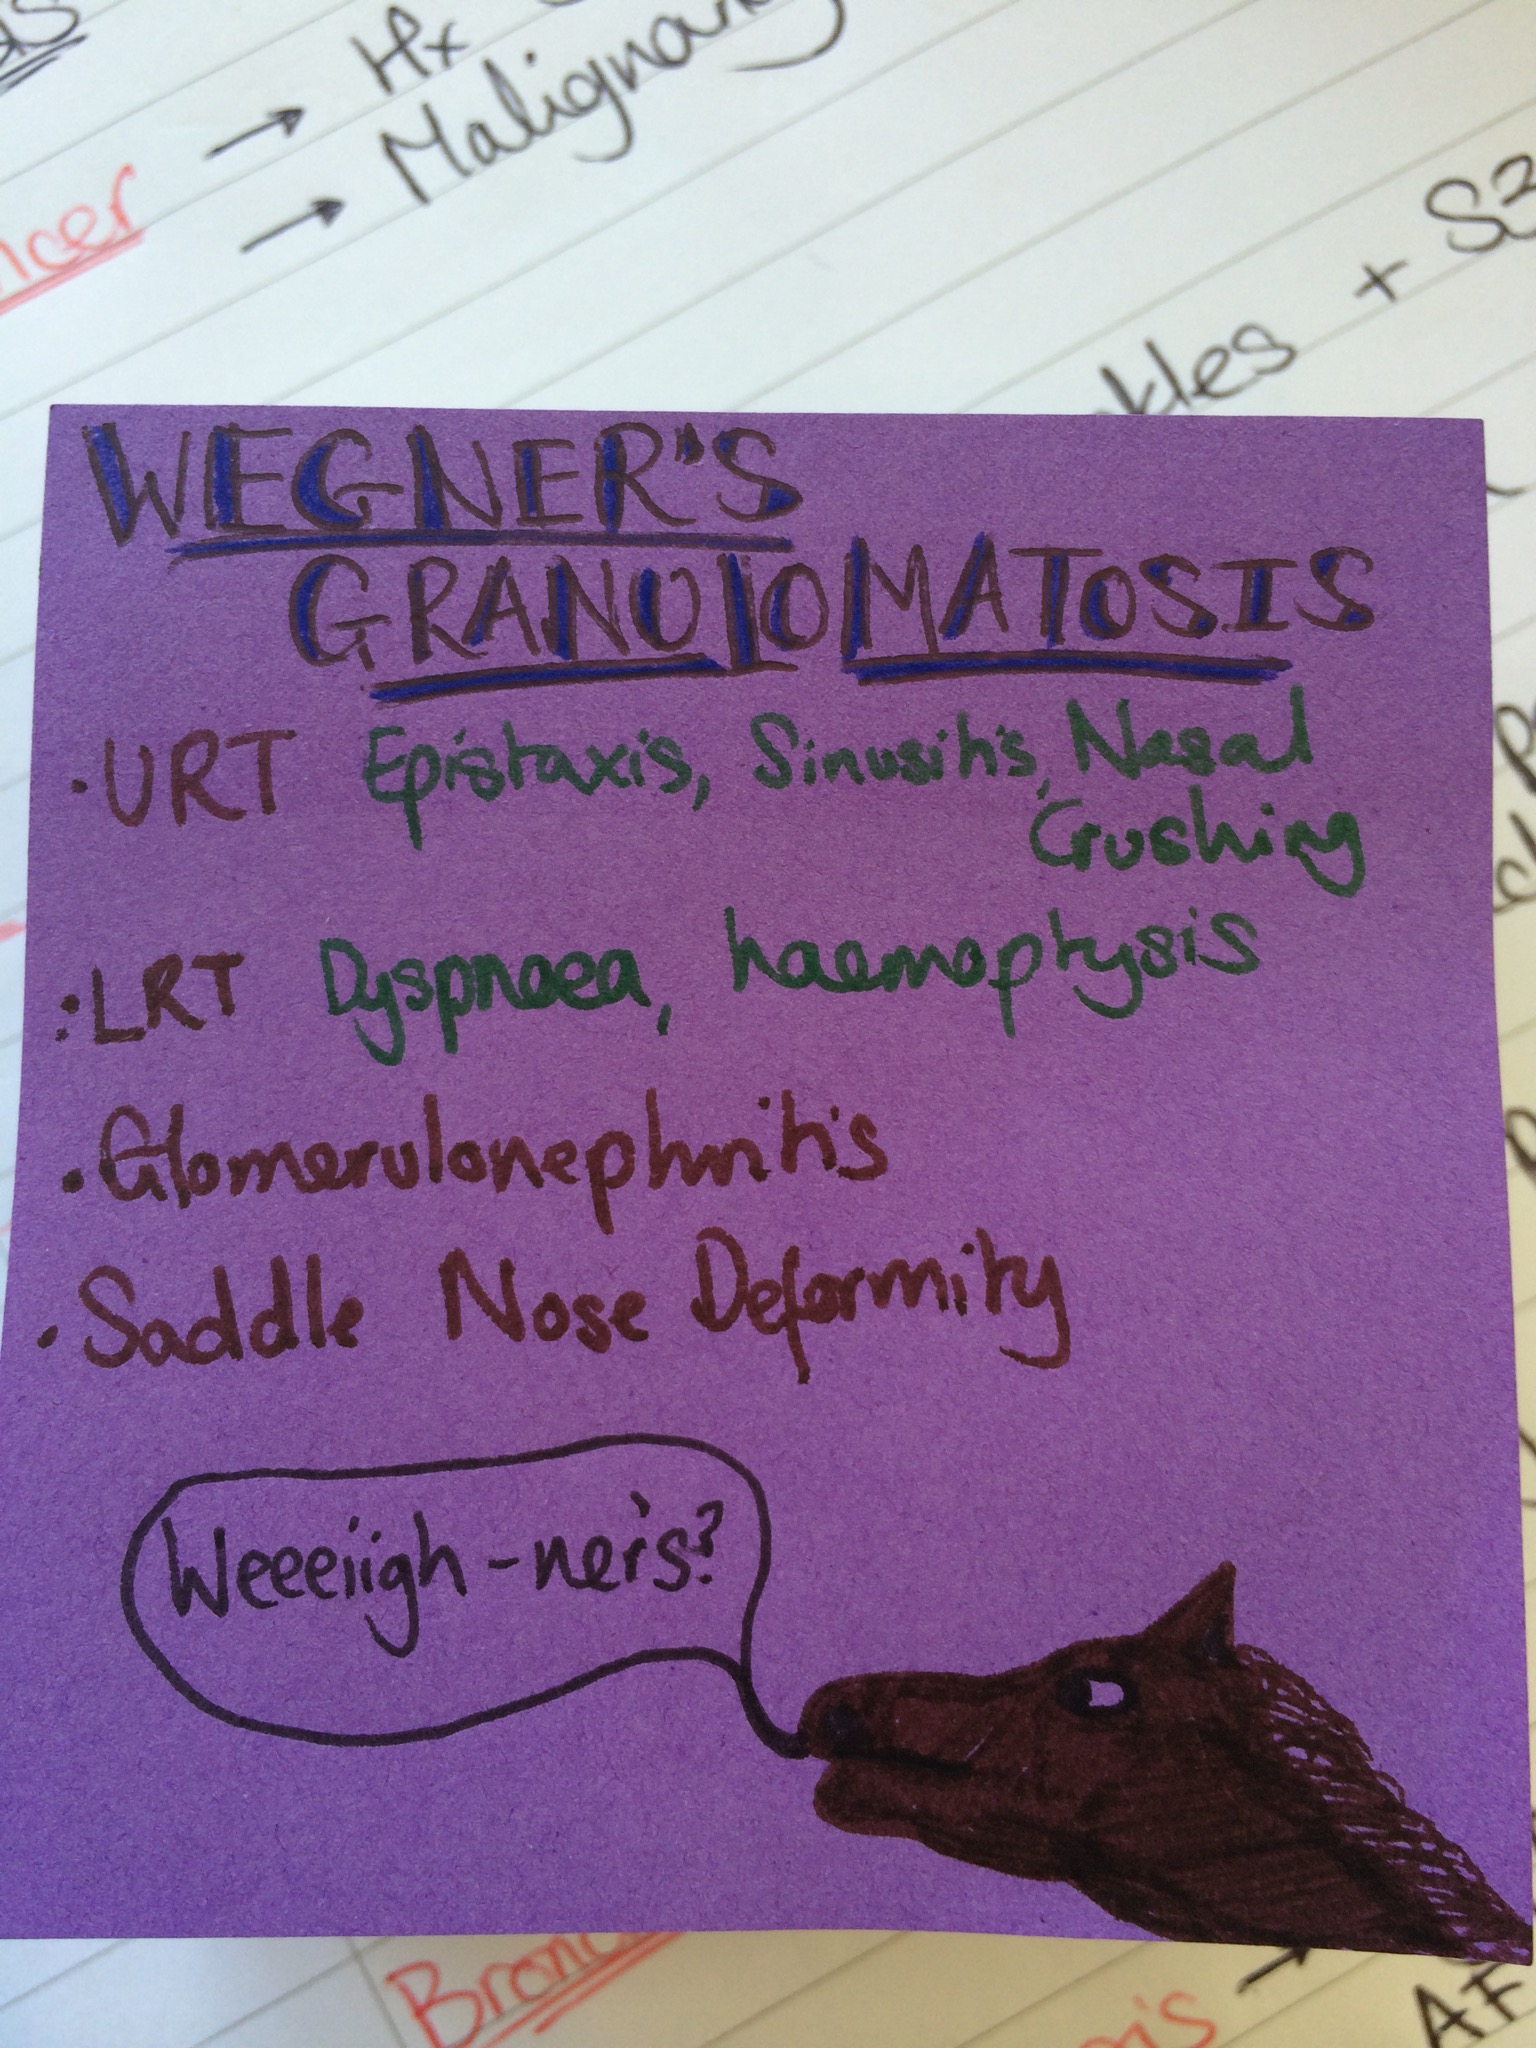 Hx
→ Malignancy
+ S3
WEGNER'S
GRANULOMATOSIS
• URT Epistaxis, Sinusitis, Nasal
Crushing
• LRT Dyspnoea, haemoptysis
• Glomerulonephritis
• Saddle Nose Deformity
Weeeiigh-ner's?
AF